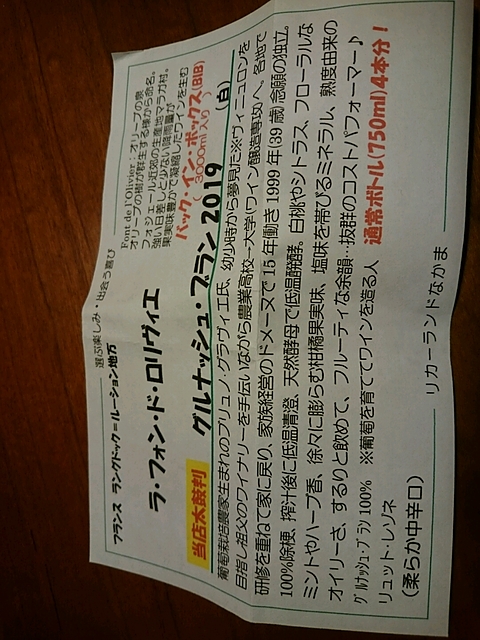 選ぶ楽しみ・出会う喜び
フランス ラングドック=ルーション地方
ラ・フォン・ド・ロリヴィエ
Font de l'Olivier：オリーブの泉
オリーブの樹が群生する様から命名。
フォジェール近郊の生産地マラガ村。
強い日差しと少ない降雨量が
果実味豊かで凝縮したワインを生む
バック・イン・ボックス(BIB)
(3000ml入り)
当店太鼓判
グルナッシュ・ブラン 2019
(白)
葡萄栽培農家生まれのブリュノ・グラヴィエ氏、幼少時から夢見た※ヴィニュロンを
目指し祖父のワイナリーを手伝いながら農業高校→大学(ワイン醸造専攻)へ。各地で
研修を重ねて家に戻り、家族経営のドメーヌで15年働き1999年(39歳)念願の独立。
100%除梗、搾汁後に低温清澄、天然酵母で低温醗酵。白桃やシトラス、フローラルな
ミントやハーブ香、徐々に膨らむ柑橘果実味、塩味を帯びるミネラル、熟度由来の
オイリーさ、するりと飲めて、フルーティな余韻…抜群のコストパフォーマー♪
グルナッシュ・ブラン 100% ※葡萄を育ててワインを造る人
通常ボトル(750ml)４本分！
リュット・レゾネ
(柔らか中辛口)
リカーランドなかま